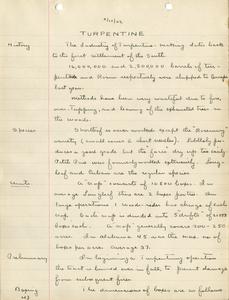 TURPENTINE
History The Industry of Turpentine making dates back
to the first settlement of the South
16,000,000 and 2,200,000 barrels of
and Rosin respectively were shipped to Europe
last year.
Methods have been very wasteful due to fire,
over-tapping, and leaving of the exhausted trees in
the woods.
Species Shortleaf is never worked except the "Rosemary"
variety (small cones & short needles). Loblolly pro-
duces a good grade but the faces dry up too early.
Pitch Pine was formerly worked extensively. Long-
leaf and Cuban are the regular species.
Units A "crop" consists of 10,500 boxes. In
average Longleaf this is 2 boxes per tree. In
large operations 1 woods-rider has charge of each
crop. Each crop is divided into 5 drifts of 2100
boxes each. A crop generally covers 200-250
acres. In Alabama 95 was the max. no. of
boxes per acre. Average 37.
Preliminary In beginning a turpentining operation
the tract is burned over in fall to prevent damage
from subsequent fires.
Boxing The dimensions of boxes are as follows